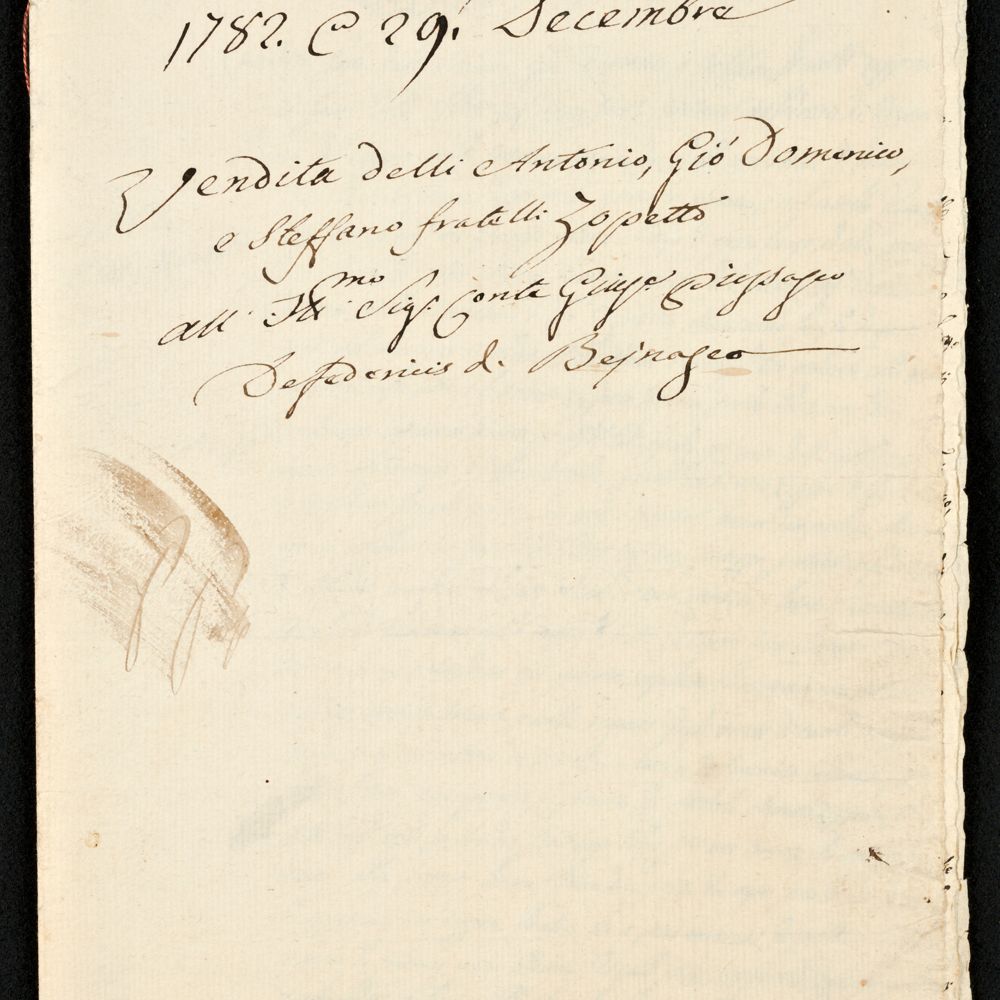 1782. 29. Decembre
Vendita delli Antonio, Gió Domenico,
e Steffano fratelli Zopetto
all' Ill.mo Sig.r Conte Gius.e
Defedericis di Bejnasco